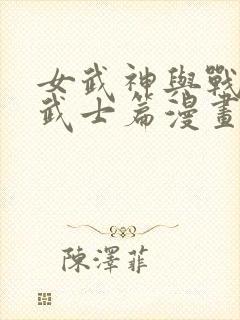 女武神與戰
武士篇漫畫
陳澤菲